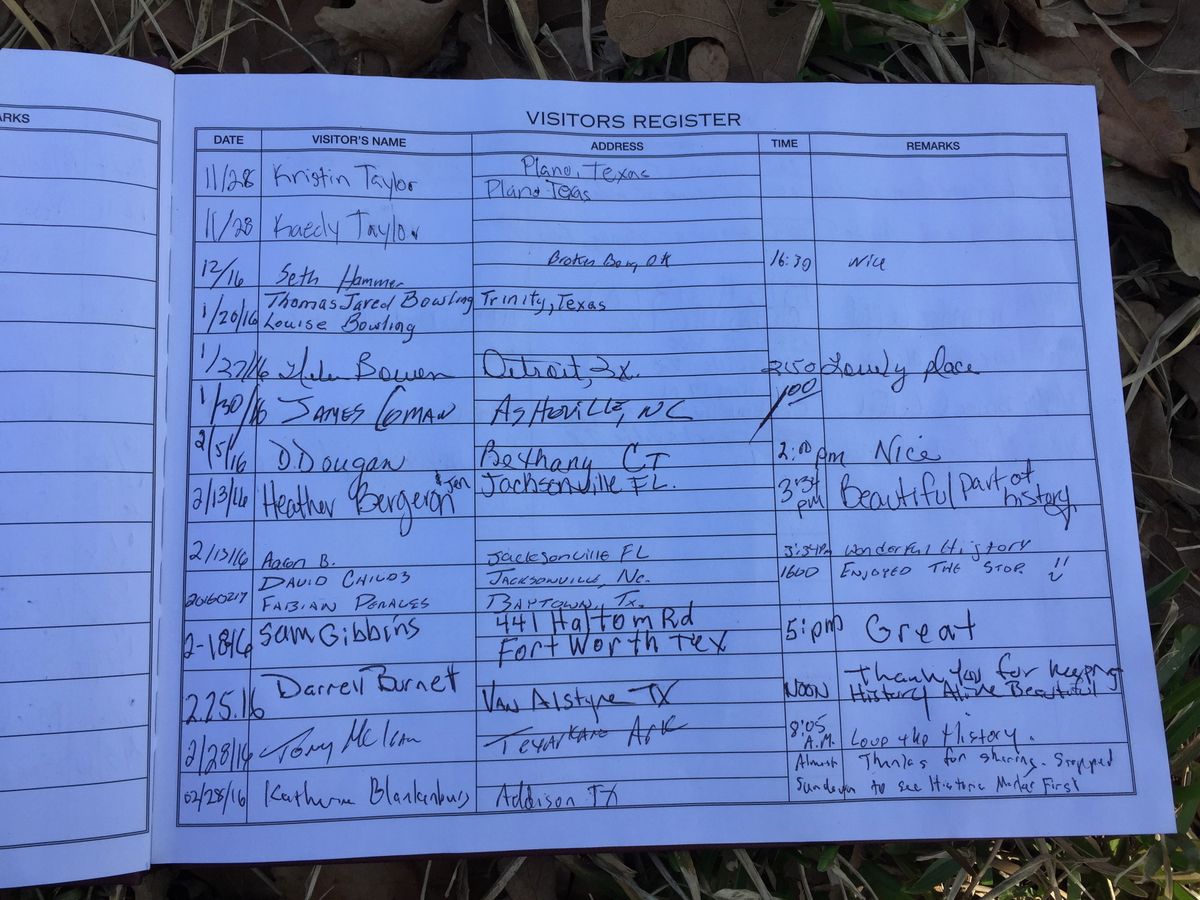 ARKS
VISITORS REGISTER
DATE VISITOR'S NAME ADDRESS TIME REMARKS
11/28 Kristin Taylor Plano, Texas
Plano Texas
11/28 Kaedy Taylor
12/16 Seth Hammer Broken Bow, OK 16:30 Nice
1/20/16 Thomas Jared Bowling Trinity, Texas
Louise Bowling
1/27/16 Helen Bowen Detroit, Tx. 2:50 Lovely place
1/30/16 JAMES COMAN ASHEVILLE, NC 1:00
2/5/16 D. Dougan Bethany CT 2:00 pm Nice
2/13/16 Heather Bergeron & Jen Jacksonville FL. 3:34 pm Beautiful part of history
2/13/16 Aaron B. Jacksonville FL 3:34pm Wonderful History
DAVID CHILDS JACKSONVILLE, NC. 1600 ENJOYED THE STOP !!
20160217 FABIAN PERALES BAYTOWN, TX.
2-18-16 Sam Gibbins 441 Haltom Rd 5:pm Great
Fort Worth Tex
2.25.16 Darrell Burnet Van Alstyne TX NOON Thank You for keeping
History Alive Beautiful
2/28/16 Tony McLean Texarkana Ark 8:05 A.M. Love the History.
02/28/16 Katherine Blankenburg Addison TX Almost Thanks for sharing. Stopped
Sundown to see Historic Marker First